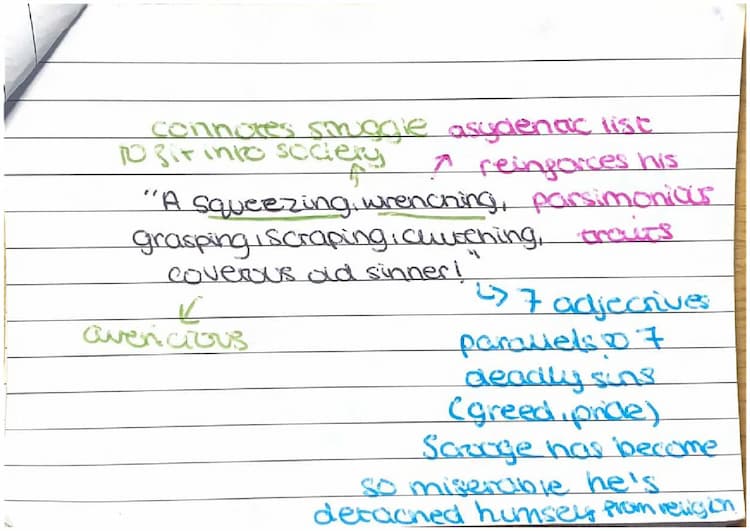 connotes struggle asydenac list
to fit into society
reinforces his
"A squeezing, wrenching, parsimonious
grasping, scraping, clutching, traits
covetous old sinner!"
↳ 7 adjectives
avericious
parallels to 7
deadly sins
(greed, pride)
Scrooge has become
so miserable he's
detached humself from religion